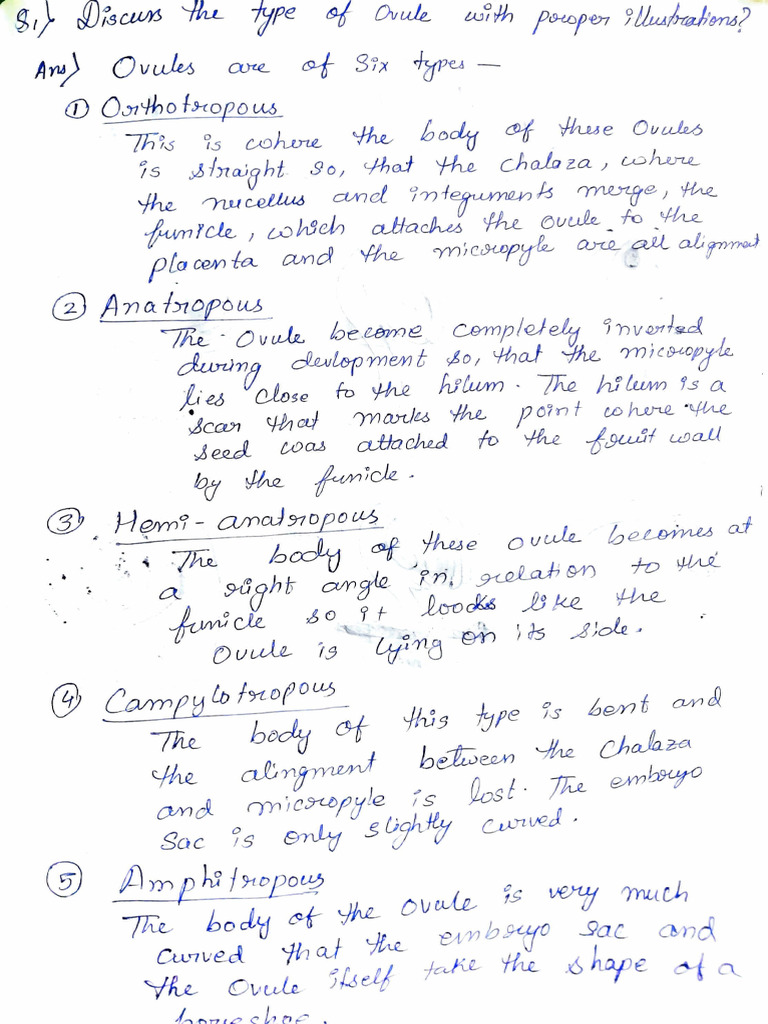 Q1) Discuss the type of Ovule with proper illustrations?
Ans) Ovules are of six types —
① Orthotropous
This is where the body of these Ovules
is straight so, that the chalaza, where
the nucellus and integuments merge, the
funicle, which attaches the ovule to the
placenta and the micropyle are all alignment
② Anatropous
The Ovule become completely inverted
during devlopment so, that the micropyle
lies close to the hilum. The hilum is a
scar that marks the point where the
seed was attached to the fruit wall
by the funicle.
③ Hemi-anatropous
The body of these ovule becomes at
a right angle in relation to the
funicle so it loooks like the
Ovule is lying on its side.
④ Campylotropous
The body of this type is bent and
the alingment between the Chalaza
and micropyle is lost. The embryo
Sac is only slightly curved.
⑤ Amphitropous
The body of the ovule is very much
curved that the embryo sac and
the Ovule itself take the shape of a
horseshoe.